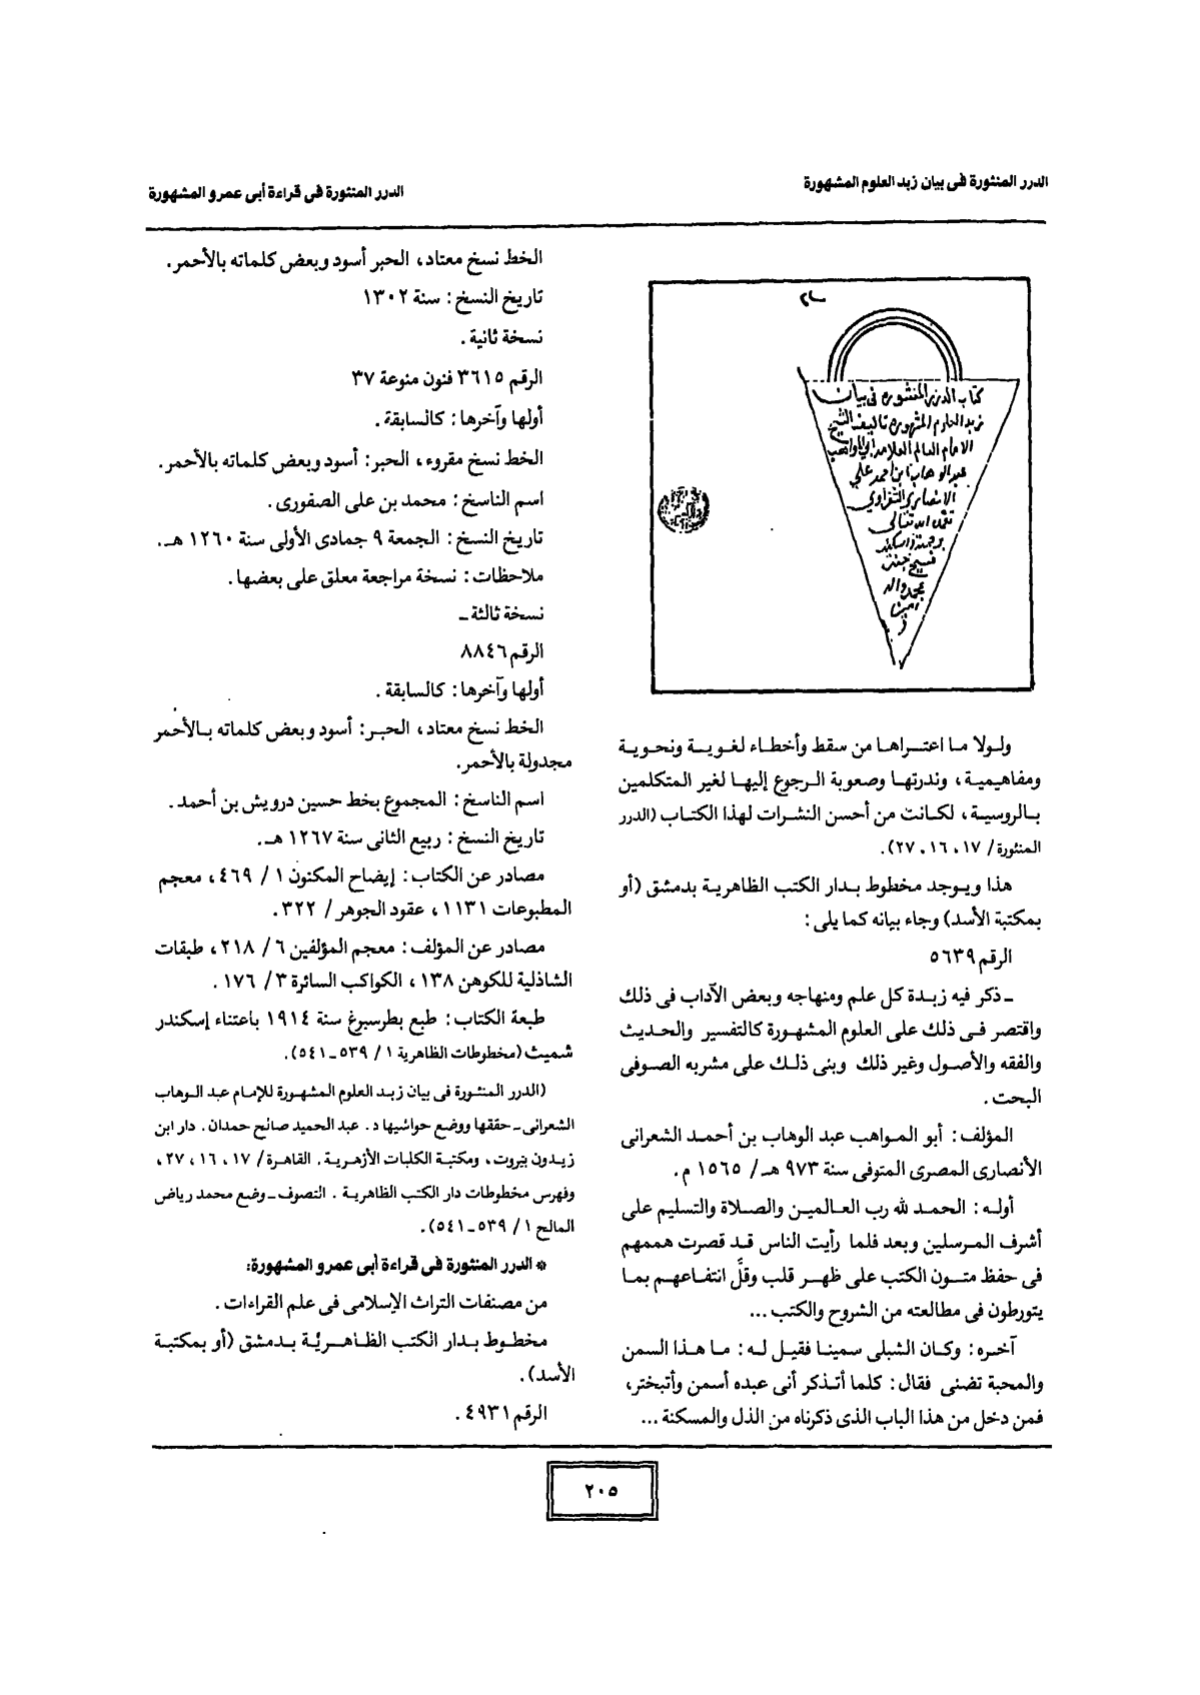 الدرر المنثورة فى بيان زبد العلوم المشهورة
الدرر المنثورة فى قراءة أبى عمرو المشهورة
كتاب الدرر المنثوره فى بيان
زبد العلوم المشهوره تاليف الشيخ
الامام العالم العلامه ابي المواهب
عبد الوهاب ابن احمد علي
الانصاري الشعراوي
تغمده الله تعالى
برحمته واسكنه
فسيح جنته
بمحمد واله
امين
ولولا ما اعتراها من سقط وأخطاء لغوية ونحوية
ومفاهيمية، وندرتها وصعوبة الرجوع إليها لغير المتكلمين
بالروسية، لكانت من أحسن النشرات لهذا الكتاب (الدرر
المنثورة/ ١٧، ١٦، ٢٧).
هذا ويوجد مخطوط بدار الكتب الظاهرية بدمشق (أو
بمكتبة الأسد) وجاء بيانه كما يلى:
الرقم ٥٦٣٩
ـ ذكر فيه زبدة كل علم ومنهاجه وبعض الآداب فى ذلك
واقتصر فى ذلك على العلوم المشهورة كالتفسير والحديث
والفقه والأصول وغير ذلك وبنى ذلك على مشربه الصوفى
البحت.
المؤلف: أبو المواهب عبد الوهاب بن أحمد الشعرانى
الأنصارى المصرى المتوفى سنة ٩٧٣ هـ/ ١٥٦٥ م.
أوله: الحمد لله رب العالمين والصلاة والتسليم على
أشرف المرسلين وبعد فلما رأيت الناس قد قصرت هممهم
فى حفظ متون الكتب على ظهر قلب وقلَّ انتفاعهم بما
يتورطون فى مطالعته من الشروح والكتب ...
آخره: وكان الشبلى سمينا فقيل له: ما هذا السمن
والمحبة تضنى فقال: كلما أتذكر أنى عبده أسمن وأتبختر،
فمن دخل من هذا الباب الذى ذكرناه من الذل والمسكنة ...
الخط نسخ معتاد، الحبر أسود وبعض كلماته بالأحمر.
تاريخ النسخ: سنة ١٣٠٢
نسخة ثانية.
الرقم ٣٦١٥ فنون منوعة ٣٧
أولها وآخرها: كالسابقة.
الخط نسخ مقروء، الحبر: أسود وبعض كلماته بالأحمر.
اسم الناسخ: محمد بن على الصقورى.
تاريخ النسخ: الجمعة ٩ جمادى الأولى سنة ١٢٦٠ هـ.
ملاحظات: نسخة مراجعة معلق على بعضها.
نسخة ثالثة ـ
الرقم ٨٨٤٦
أولها وآخرها: كالسابقة.
الخط نسخ معتاد، الحبر: أسود وبعض كلماته بالأحمر
مجدولة بالأحمر.
اسم الناسخ: المجموع بخط حسين درويش بن أحمد.
تاريخ النسخ: ربيع الثانى سنة ١٢٦٧ هـ.
مصادر عن الكتاب: إيضاح المكنون ١ / ٤٦٩، معجم
المطبوعات ١١٣١، عقود الجوهر/ ٣٢٢.
مصادر عن المؤلف: معجم المؤلفين ٦ / ٢١٨، طبقات
الشاذلية للكوهن ١٣٨، الكواكب السائرة ٣ / ١٧٦.
طبعة الكتاب: طبع بطرسبرغ سنة ١٩١٤ باعتناء إسكندر
شميث (مخطوطات الظاهرية ١ / ٥٣٩ ـ ٥٤١).
(الدرر المنثورة فى بيان زبد العلوم المشهورة للإمام عبد الوهاب
الشعرانى ـ حققها ووضع حواشيها د. عبد الحميد صالح حمدان. دار ابن
زيدون بيروت، ومكتبة الكليات الأزهرية. القاهرة/ ١٧، ١٦، ٢٧،
وفهرس مخطوطات دار الكتب الظاهرية. التصوف ـ وضع محمد رياض
المالح ١ / ٥٣٩ ـ ٥٤١).
* الدرر المنثورة فى قراءة أبى عمرو المشهورة:
من مصنفات التراث الإسلامى فى علم القراءات.
مخطوط بدار الكتب الظاهرية بدمشق (أو بمكتبة
الأسد).
الرقم ٤٩٣١.
٢٠٥